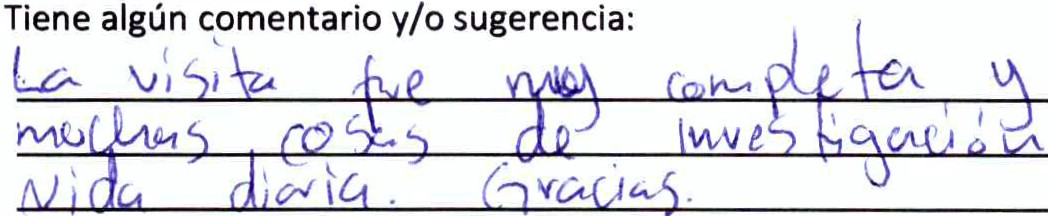 Tiene algún comentario y/o sugerencia:
La visita fue muy completa y
muchas cosas de investigación
Vida diaria. Gracias.